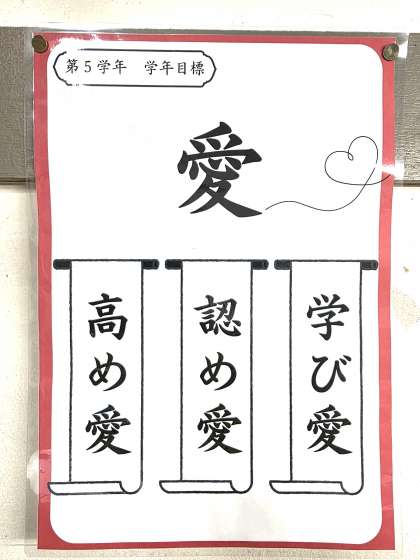 第5学年　学年目標
愛
学び愛
認め愛
高め愛